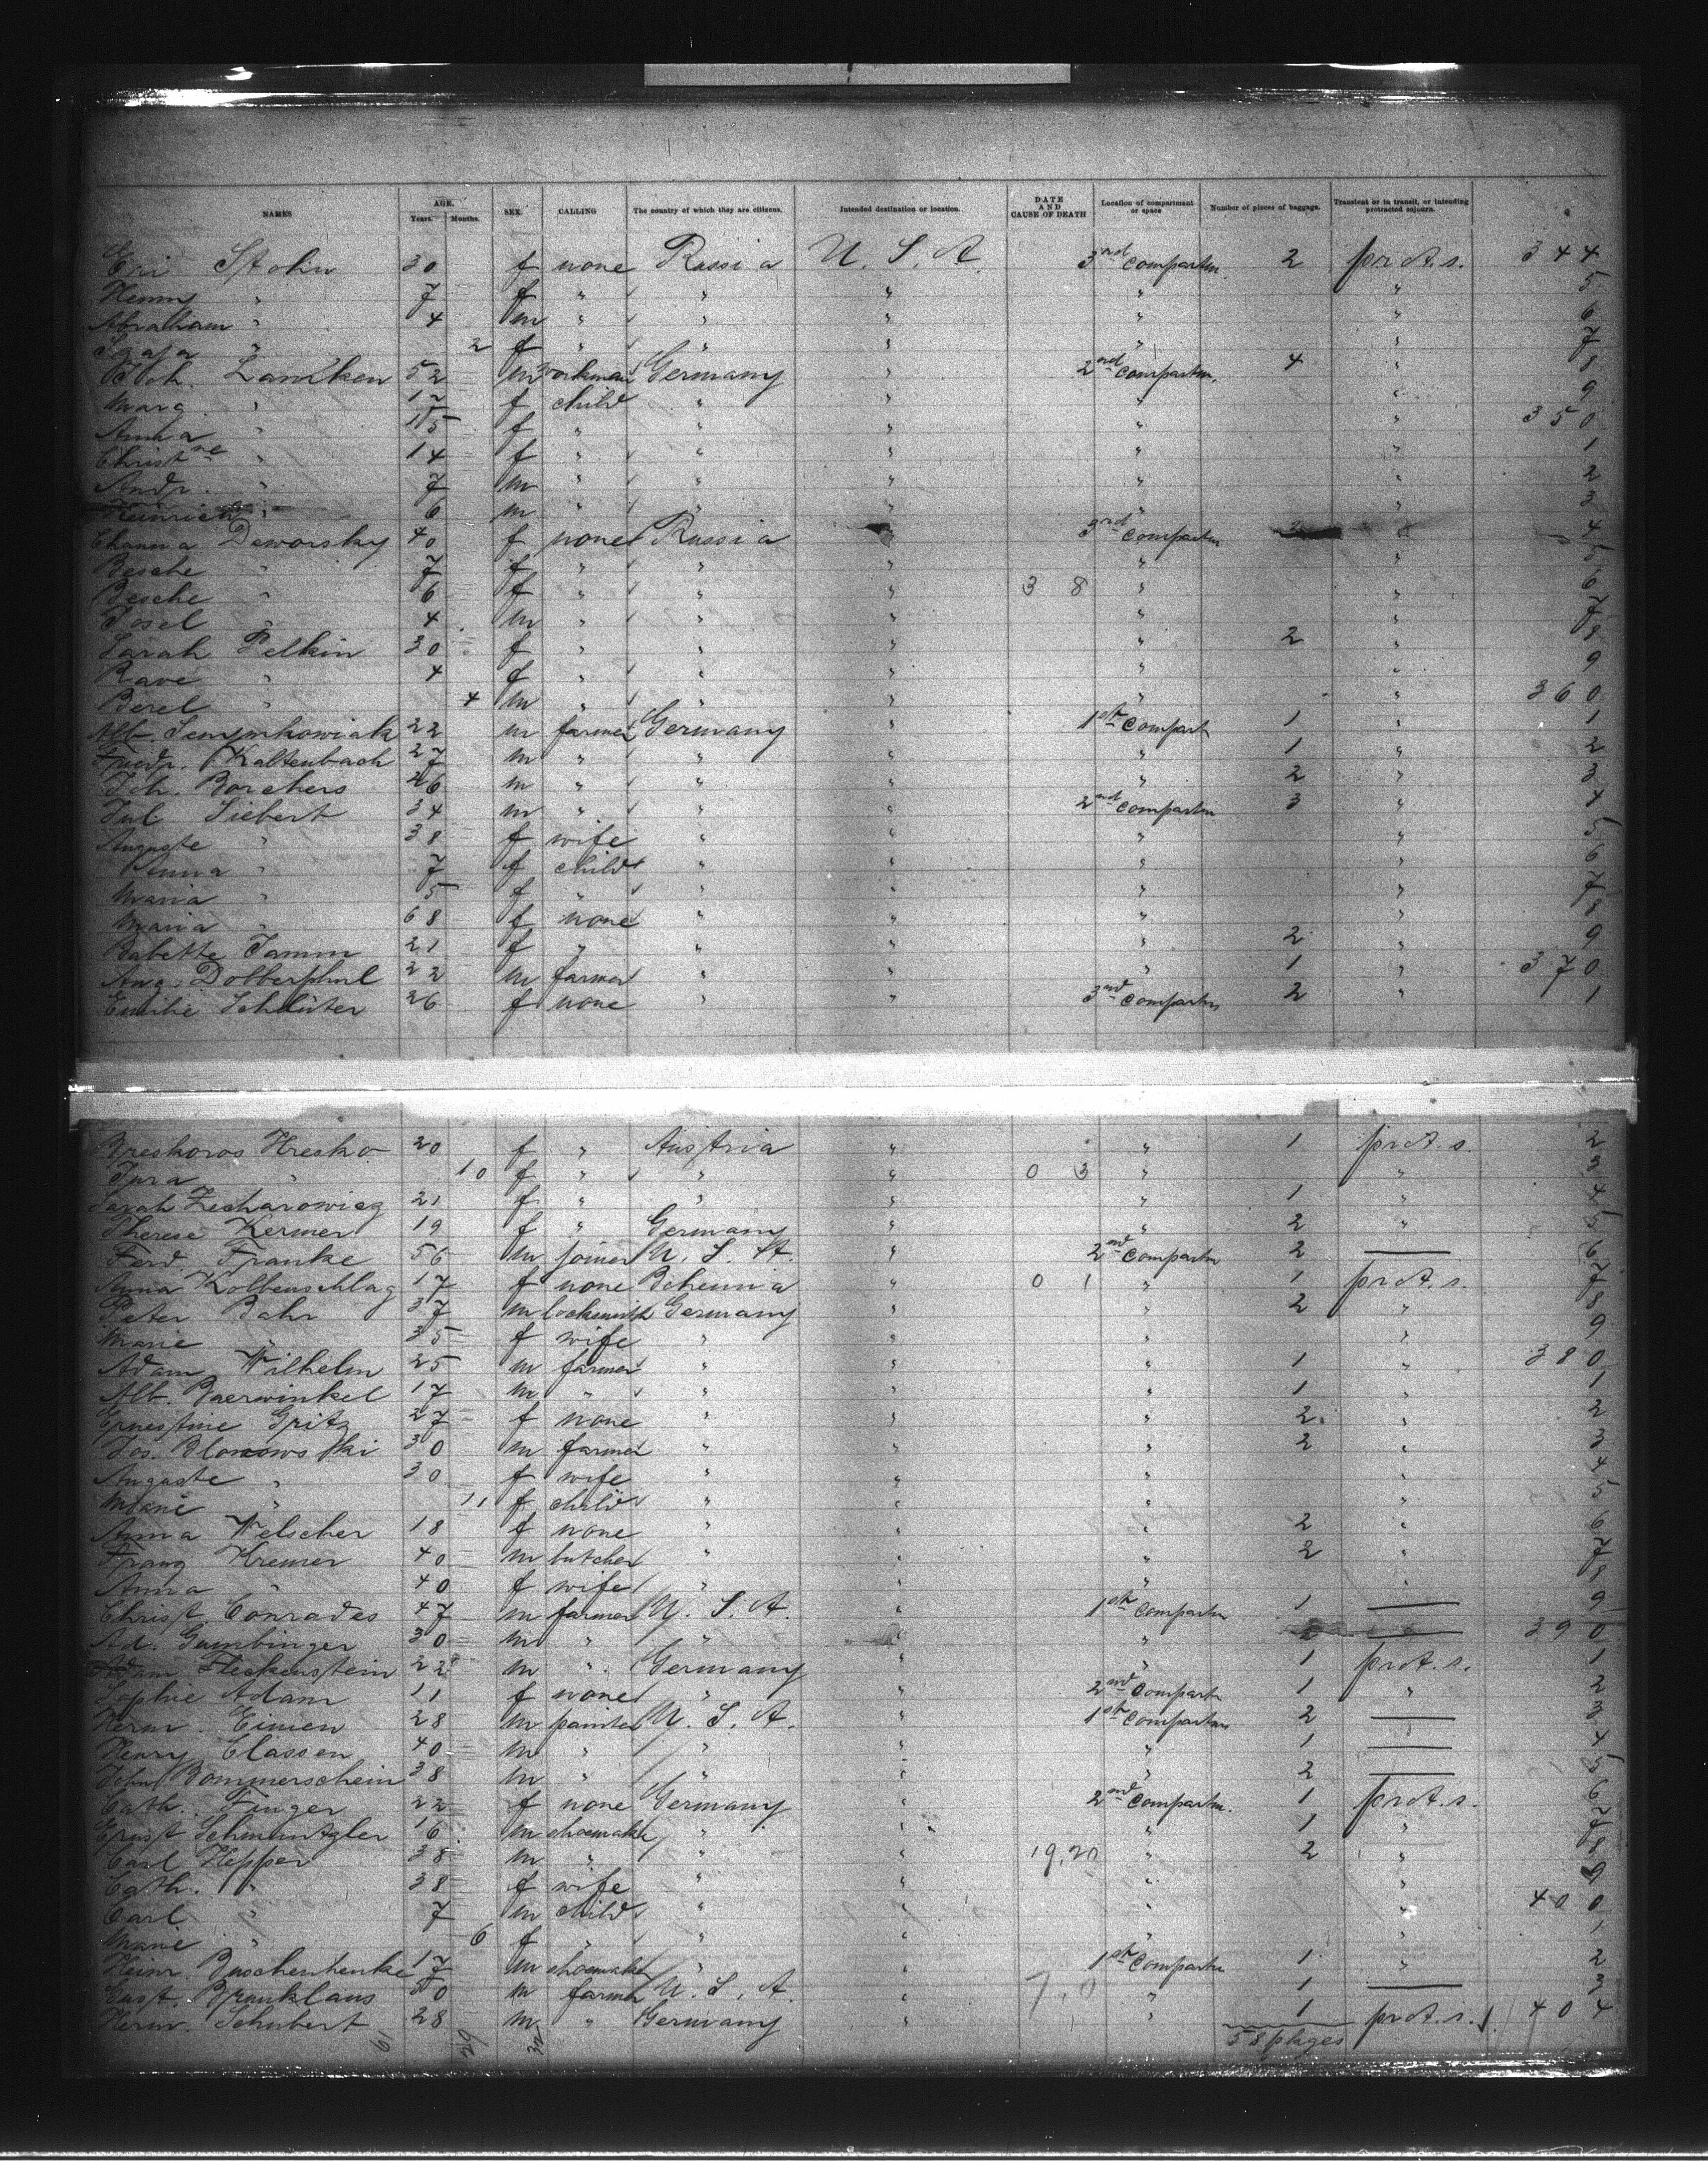 NAMES AGE. Years. Months. SEX. CALLING The country of which they are citizens. Intended destination or location. DATE AND CAUSE OF DEATH Location of compartment or space Number of pieces of baggage. Transient or in transit, or intending protracted sojourn.
Eri Stohn 30 f none Russia U. S. A. 3rd compartm. 2 prot. s. 344
Henny " 7 f " " " " " 5
Abraham " 4 m " " " " " 6
" 2 f " " " " " 7
Joh. Lancken 52 m workman Germany " 2nd compartm. 4 " 8
Marg. " 17 f child " " " " 9
Anna " 15 f " " " " " 350
Christne " 14 f " " " " " 1
Andr. " 7 m " " " " " 2
Heinrich " 6 m " " " " " 3
Channa Deworsky 40 f none Russia " 3rd compartm 2 " 4
Besche " 7 f " " " " " 5
Besche " 6 f " " " 3 8 " " 6
Josel " 4 m " " " " " 7
Sarah Pelkin 30 f " " " " 2 " 8
Rave " 4 f " " " " " 9
Berel " 4 m " " " " " 360
Alb. Semymkowiak 22 m farmer Germany " 1st compart 1 " 1
Friedr. Kaltenbach 27 m " " " " 1 " 2
Joh. Borchers 26 m " " " " 2 " 3
Jul Siebert 34 m " " " 2nd compartm 3 " 4
Auguste " 38 f wife " " " " 5
Anna " 7 f child " " " " 6
Maria " 5 f " " " " " 7
Maria " 68 f none " " " " 8
Babette Tamm 21 f " " " " 2 " 9
Aug. Dobberphul 22 m farmer " " " 1 " 370
Emilie Schlüter 26 f none " " 3rd compartm 2 " 1
Breskoros Hresko 20 f " Austria " " 1 prot. s. 2
Jura " 10 f " " " 0 3 " " 3
Sarah Zecharowicz 21 f " " " " 1 " 4
Therese Kermer 19 f " Germany " " 2 " 5
Ferd. Franke 56 m joiner U. S. A. " 2nd compartm 2 — 6
Anna Kolbenschlag 17 f none Bohemia " 0 1 " 1 prot. s. 7
Peter Bahr 37 m locksmith Germany " " 2 " 8
Marie " 35 f wife " " " " 9
Adam Wilhelm 25 m farmer " " " 1 " 380
Alb. Baerwinkel 17 m " " " " 1 " 1
Ernestine Gritz 27 f none " " " 2 " 2
Jos. Blonowski 30 m farmer " " " 2 " 3
Auguste " 30 f wife " " " " 4
Marie " 11 f child " " " " 5
Anna Welscher 18 f none " " " 2 " 6
Franz Kremer 40 m butcher " " " 2 " 7
Anna " 40 f wife " " " " 8
Christ. Conrades 47 m farmer U. S. A. " 1st compartm 1 — 9
Ad. Gumbinger 30 m " " " " 2 — 390
Adam Fleckenstein 22 m " Germany " " 1 prot. s. 1
Sophie Adam 11 f none " " 2nd compartm 1 " 2
Herm. Eimen 28 m painter U. S. A. " 1st compartm 2 — 3
Henry Classen 40 m " " " " 1 — 4
John Bommerschein 38 m " " " " 2 — 5
Cath. Finger 22 f none Germany " 2nd compartm. 1 prot. s. 6
Ernst Schmuntzler 16 m shoemaker " " " 1 " 7
Carl Hepper 38 m " " " 19,20 " 2 " 8
Cath. " 38 f wife " " " " 9
Carl " 7 m child " " " " 400
Marie " 6 f " " " " " 1
Heinr. Buschenhenke 17 m shoemaker " " 1st compartm 1 " 2
Gust. Brunklaus m farmer U. S. A. " 7,0 " 1 — 3
Herm. Schubert 28 m " Germany " 1 prot. s. 404
61 29 32 58 plages